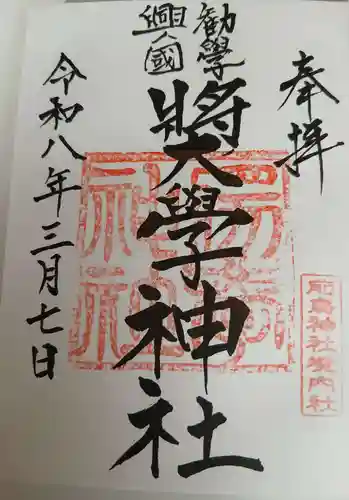 奉拝
勧學
興國
奬學神社
令和八年三月七日
神社境内社